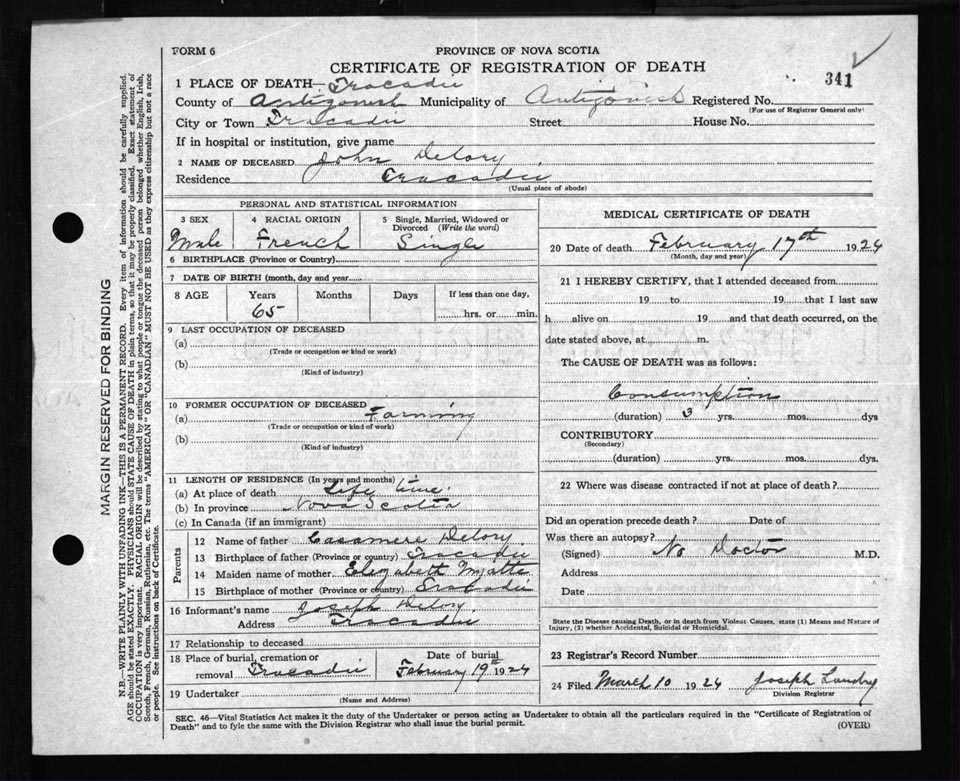 FORM 6
PROVINCE OF NOVA SCOTIA
CERTIFICATE OF REGISTRATION OF DEATH
341
1 PLACE OF DEATH— Tracadie
County of Antigonish Municipality of Antigonish Registered No.
(For use of Registrar General only)
City or Town Tracadie Street House No.
If in hospital or institution, give name
2 NAME OF DECEASED John Delory
Residence Tracadie
(Usual place of abode)
PERSONAL AND STATISTICAL INFORMATION
3 SEX 4 RACIAL ORIGIN 5 Single, Married, Widowed or
Divorced (Write the word)
Male French Single
6 BIRTHPLACE (Province or Country)
7 DATE OF BIRTH (month, day and year
8 AGE Years Months Days If less than one day,
65 hrs. or min.
9 LAST OCCUPATION OF DECEASED
(a)
(Trade or occupation or kind or work)
(b)
(Kind of industry)
10 FORMER OCCUPATION OF DECEASED
(a) Farming
(Trade or occupation or kind of work)
(b)
(Kind of industry)
11 LENGTH OF RESIDENCE (In years and months)
(a) At place of death Life time
(b) In province Nova Scotia
(c) In Canada (if an immigrant)
Parents
12 Name of father Casamere Delory
13 Birthplace of father (Province or country) Tracadie
14 Maiden name of mother Elizabeth
15 Birthplace of mother (Province or country) Tracadie
16 Informant's name Joseph Delory
Address Tracadie
17 Relationship to deceased
18 Place of burial, cremation or removal Tracadie
Date of burial February 19th 1924
19 Undertaker
(Name and Address)
MEDICAL CERTIFICATE OF DEATH
20 Date of death February 17th 1924
(Month, day and year)
21 I HEREBY CERTIFY, that I attended deceased from
19 to 19 that I last saw
h alive on 19 and that death occurred, on the
date stated above, at m.
The CAUSE OF DEATH was as follows:
Consumption
(duration) 3 yrs. mos. dys
CONTRIBUTORY
(Secondary)
(duration) yrs. mos. dys.
22 Where was disease contracted if not at place of death?
Did an operation precede death? Date of
Was there an autopsy?
(Signed) No Doctor M.D.
Address
Date
State the Disease causing Death, or in death from Violent Causes, state (1) Means and Nature of
Injury, (2) whether Accidental, Suicidal or Homicidal.
23 Registrar's Record Number
24 Filed March 10 1924 Joseph Landry
Division Registrar
SEC. 46—Vital Statistics Act makes it the duty of the Undertaker or person acting as Undertaker to obtain all the particulars required in the "Certificate of Registration of
Death" and to fyle the same with the Division Registrar who shall issue the burial permit.
(OVER)
MARGIN RESERVED FOR BINDING
N.B.—WRITE PLAINLY WITH UNFADING INK—THIS IS A PERMANENT RECORD. Every item of information should be carefully supplied.
AGE should be stated EXACTLY. PHYSICIANS should STATE CAUSE OF DEATH in plain terms, so that it may be properly classified. Exact statement of
OCCUPATION is very important. RACIAL ORIGIN will be described by stating to what people or tongue the deceased person belonged whether English, Irish,
Scotch, French, German, Russian, Ruthenian, etc. The terms "AMERICAN" OR "CANADIAN" MUST NOT BE USED as they express citizenship but not a race
or people. See instructions on back of Certificate.